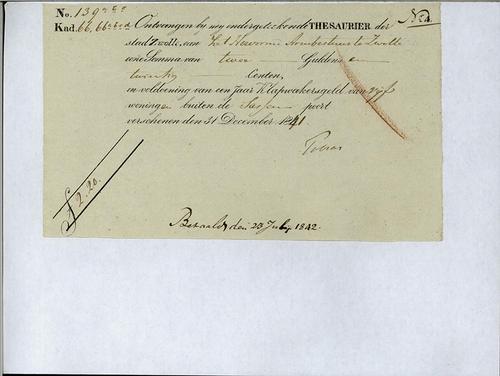 No. 139
No. 4.
Kad. 66, 66 Ontvangen by my ondergeteekende THESAURIER der
stad Zwolle, van Het Hervormd Armbestuur te Zwolle
eene Somma van twee Guldens en
twintig Centen,
in voldoening van een jaar Klapwakersgeld van vijf
woningen buiten de Sassen poort
verschenen den 31 December 1841
Tobias
f 2.20.
Betaald den 23 July 1842.